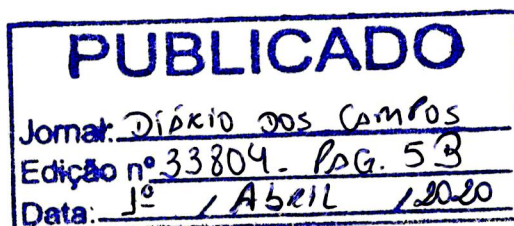 PUBLICADO
Jornal: DIÁRIO DOS CAMPOS
Edição nº 33804 - PAG. 5B
Data: 1º / Abril / 2020